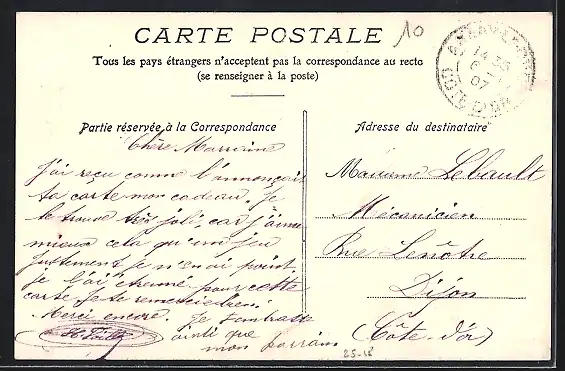 CARTE POSTALE
10
Tous les pays étrangers n'acceptent pas la correspondance au recto
(se renseigner à la poste)
14 35
6
07
CÔTE D'OR
Partie réservée à la Correspondance
Chère Marraine
J'ai reçu comme l'annonçait
ta carte mon cadeau. Je
le trouve très joli, car j'aime
mieux cela qu'un jeu
justement je n'en ai point.
je l'ai étrenné pour cette
carte. Je te remercie
Merci encore. Je t'embrasse
ainsi que
mon parrain
Adresse du destinataire
Madame Lebault
Mécanicien
Rue Lenôtre
Dijon
(Côte-d'or)
25-18